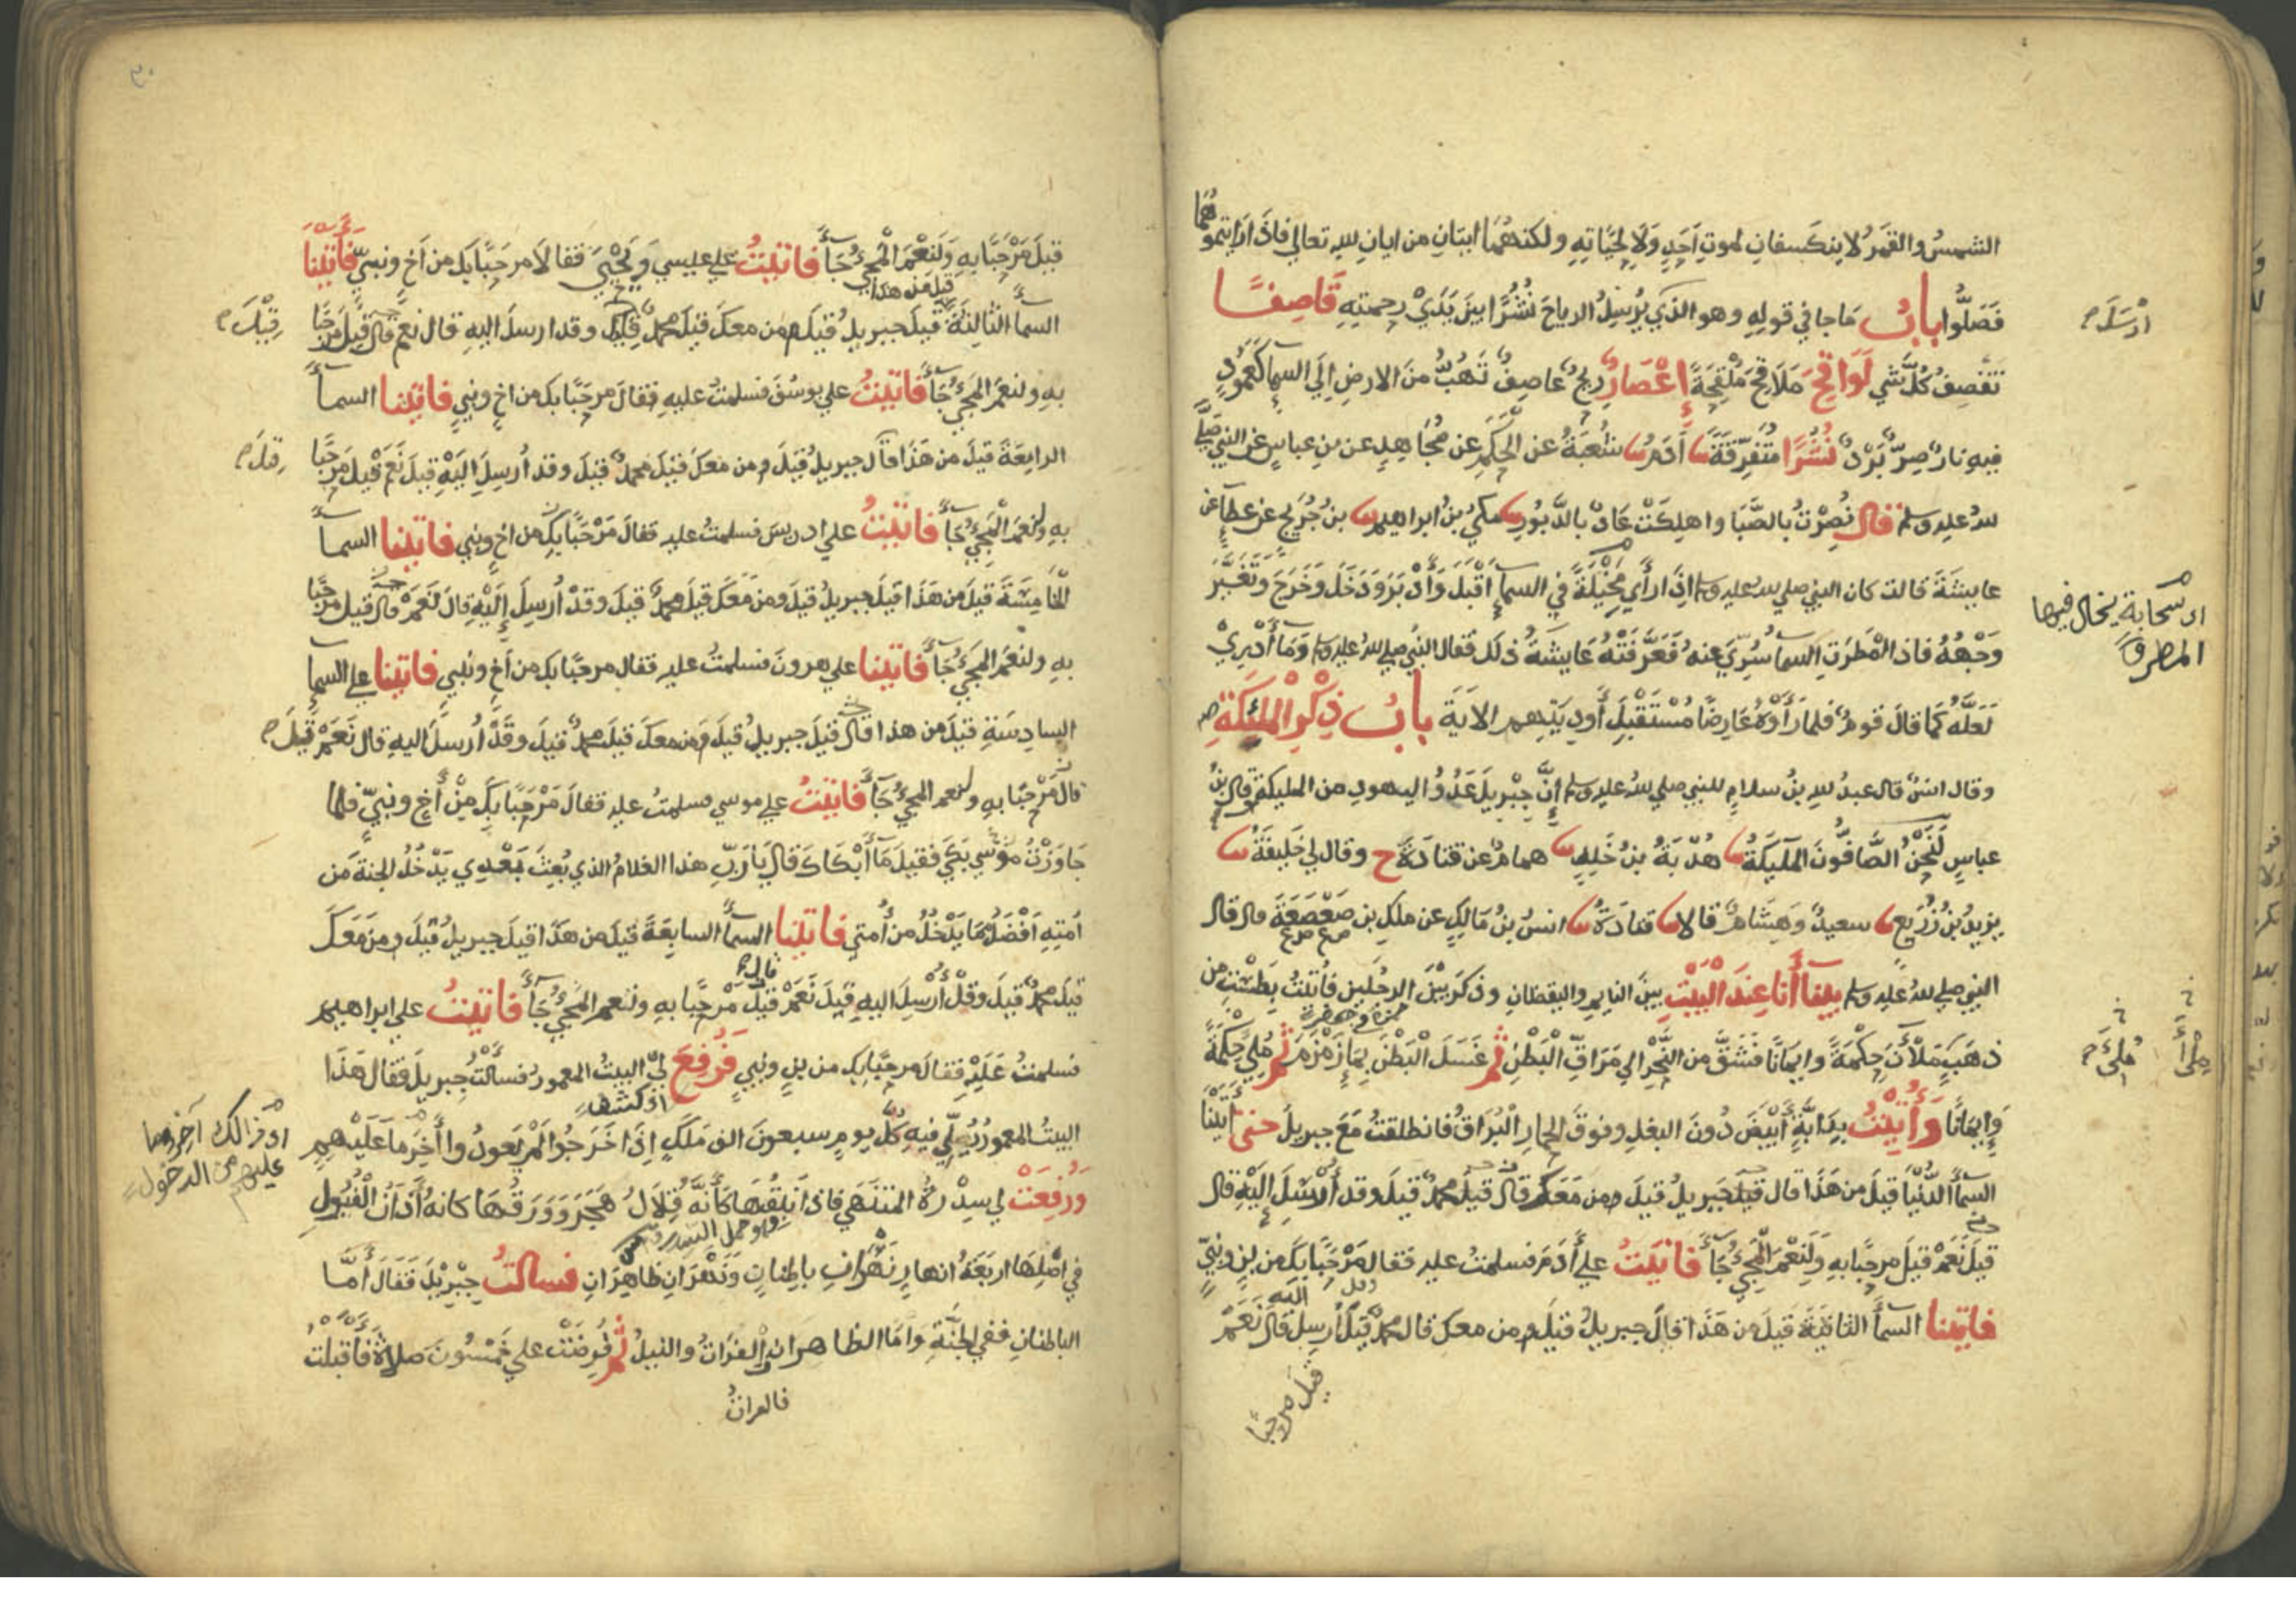 الشمسُ والقمرُ لا ينكسفانِ لموتِ اَحدٍ وَلاَ لِحَيَاتِهِ ولكنهُمَا ايتانِ من اياتِ لله تعالى فاذَا رَايتموهُمَا
فَصَلُّوا بابُ مَاجا في قولِهِ وهوالذي يُرْسِلُ الرياحَ نُشُرًا بينَ يَدَيْ رحمتِهِ قَاصِفًا
تَقْصِفُ كُلَّ شي لَوَاقِحَ مَلاَقِحَ مُلْقِحَةً إِعْصَارٌ ريحٌ عاصِفٌ تَهُبُّ منَ الارضِ اِلَي السمآءِ كَعَمُودٍ
فيهِ نارٌ صِرٌّ بَرْدٌ نُشُرًا مُتَفَرِّقَةً ادَمُ شُعْبَةُ عن الحَكَمِ عن مُجَاهِدٍ عن بن عباسٍ عن النبي صلى
لله عليه وسلم قال نُصِرْتُ بالصَّبَا واهلِكَتْ عَادٌ بالدَّبُورِ مكيُّ بنُ ابراهيم بن جُرَيجٍ عن عطآءٍ عن
عايشَةَ قالت كان النبي صلى لله عليه وسلم اذَا رأَي مَخِيْلَةً في السمآءِ اَقْبَلَ وَأَدْبَرَ وَدَخَلَ وَخَرَجَ وَتَغَيَّرَ
وَجْهُهُ فاذا امْطَرَتِ السمآءُ سُرِّيَ عنهُ فَعَرَّفَتْهُ عَايشَةُ ذلكَ فقال النبي صلى لله عليه وسلم وَمَا أَدْرِيْ
لَعَلَّهُ كما قالَ قومٌ فلما رَأَوْهُ عَارِضًا مُسْتَقْبِلَ أَودِيَتِهِم الايَةَ بابُ ذِكْرِ الْمَلَئِكَةِ
وقال انسٌ قال عبدُ للهِ بنُ سلامٍ للنبي صلى لله عليه وسلم إِنَّ جِبْرِيلَ عَدُوُّ اليهودِ من المليكةِ وقال بنُ
عباسٍ لَنَحْنُ الصَّافُّونَ المَلَيكَةُ هُدْبَةُ بنُ خَالِدٍ همامٌ عن قتادَةَ ح وقال لي خليفَةُ
يزيدُ بنُ زُرَيعٍ سعيدٌ وَهِشَامٌ قالا قتادَةُ انسُ بنُ مَالِكٍ عن ملكِ بن صَعْصَعَةَ قال قال
النبي صلى لله عليه وسلم بينا أَنا عِنْدَ الْبَيْتِ بينَ النايمِ واليقظانِ وذكَرَ بَيْنَ الرجُلَينِ فأتيتُ بِطَسْتٍ من
ذهَبٍ مَلْأنَ حِكْمَةً وايمَانًا فَشَقَّ من النَّحْرِ الي مَرَاقِّ الْبَطْنِ ثم غَسَلَ الْبَطْنَ بِمَآءِ زَمْزَمَ ثم مُلِئَ حِكْمَةً
وَإِيمَانًا وَأُتِيْتُ بِدَابَّةٍ أَبْيَضَ دُونَ البغلِ وفوقَ الحِمارِ الْبُرَاقُ فانطلقتُ مَعَ جبريلَ حتى أَتَيْنَا
السمآءَ الدُّنْيَا قيلَ من هَذَا قال جبريلُ قيلَ ومن مَعَكَ قال قيلَ محمدٌ قيلَ وقد أُرْسِلَ إِلَيْهِ قال
قيلَ نَعَمْ قيلَ مرحَبًا بهِ وَلَنِعْمَ المَجِيُّ جَآءَ فاتَيتُ علي أدَمَ فسلمتُ عليه فقال مَرْحَبًا بكَ من بنٍ ونبيٍّ
فاتينا السمآءَ الثانيَةَ قيلَ من هَذَا قالَ جبريلُ قيلَ ومن معك قال محمدٌ قيلَ أُرسِلَ اليه قال نَعَمْ
قيل مرحبًا
أرْسَلَ
اي سَحَابة يخال فيها
المطر
مَلأى
مُلِئَ
قيلَ مَرْحَبًا بِهِ وَلَنِعْمَ الْمَجِيُّ جَآءَ فاتيتُ علي عيسي وَيَحْيَي فقالاَ مرحَبًا بكَ من اَخٍ ونبيّ فأَتَيْنَا
السمآءَ الثالِثَةَ قيلَ من هذا قيلَ جبريلُ قيلَ ومن معكَ قيلَ محمدٌ قيلَ وقد ارسلَ اليهِ قال نعَم قال قيلَ مرحَبًا
بهِ ولنعمَ المَجيُّ جَآءَ فاتيتُ علي يوسُفَ فسلمتُ عليهِ فقالَ مرحَبًا بك من اخٍ ونبيٍ فاتينا السمآءَ
الرابِعَةَ قيلَ من هَذَا قال جبريلُ قيلَ ومن معكَ قيلَ محمدٌ قيلَ وقد أُرسِلَ اِلَيْهِ قيلَ نَعَم قيلَ مرحَبًا
بهِ ولنعمَ الْمَجيُّ جَآءَ فاتيتُ علي ادريسَ فسلمتُ عليه فقالَ مَرْحَبًا بك من اخٍ ونبي فاتينا السمآءَ
الخَامِسَةَ قيلَ من هَذَا قيلَ جبريلُ قيلَ ومن مَعَكَ قيلَ محمدٌ قيلَ وقَدْ أُرسِلَ إِلَيْهِ قالَ نَعَمْ قال قيلَ مرحَبًا
بهِ ولنعمَ المَجيُّ جَآءَ فاتينا علي هرونَ فسلمتُ عليه فقال مرحبًا بك من اَخٍ ونبيٍ فاتينا علي السمآءِ
السادِسَةِ قيلَ من هذا قال قيلَ جبريلُ قيلَ ومن معكَ قيلَ محمدٌ قيلَ وقَدْ أُرسلَ اليهِ قال نَعَمْ قيلَ
قال مَرْحَبًا بهِ ولنعم المَجيُّ جَآءَ فاتيتُ علي موسي فسلمتُ عليه فقالَ مَرْحَبًا بِكَ مِنْ أَخٍ ونبيٍّ فلما
جَاوَزْتُ مُوسي بَكَي فقيلَ مَآ أَبْكَاكَ قال يَارَبِّ هذا الغلامُ الذي بُعِثَ بَعْدِي يَدْخُلُ الجنة مَن
أمتِهِ اَفْضَلُ مما يَدْخُلُ من أُمتي فاتينا السمآءَ السابِعَةَ قيلَ من هَذَا قيلَ جبريلُ قيلَ ومن مَعَكَ
قيلَ محمدٌ قيلَ وقدْ أُرْسِلَ اليهِ قيلَ نَعَمْ قيلَ مَرْحَبًا بهِ ولنعم المَجيُّ جَآءَ فاتيتُ علي ابراهيم
فسلمتُ عَلَيْهِ فقالَ مرحَبًا بك من بنٍ ونبيٍ فَرُفِعَ لِيَ البيتُ المعمورُ فسَأَلْتُ جبريلَ فقالَ هَذَا
البيتُ المعمورُ يُصَلِّي فيهِ كلَّ يومٍ سبعونَ الفَ مَلَكٍ اِذَا خَرَجُوا لَمْ يَعودُوا أخِرَ مَا عَلَيْهِم
وَرُفِعَتْ لي سِدْرَةُ المنتَهَي فاذَا نَبِقُهَا كأَنَّهُ قِلاَلُ هَجَرَ وَوَرَقُهَا كانهُ أذَانُ الْفُيُولِ
في اَصْلِهَا اربَعَةُ انهارٍ نَهْرَانِ باطِنانِ وَنَهْرَانِ ظاهِرَانِ فسالتُ جِبْرِيْلَ فَقَالَ أَمَّا
الباطنانِ ففي الجنَّةِ وَاَمَّا الظاهرانِ الفرَاتُ والنيلُ ثم فُرِضَتْ علي خَمْسُونَ صلاةً فَأَقْبَلْتُ
فالفراتُ
قِيْلَ
قيلَ
اي كشف
وهو حمل السدر
عليهم من الدخول
٣٠